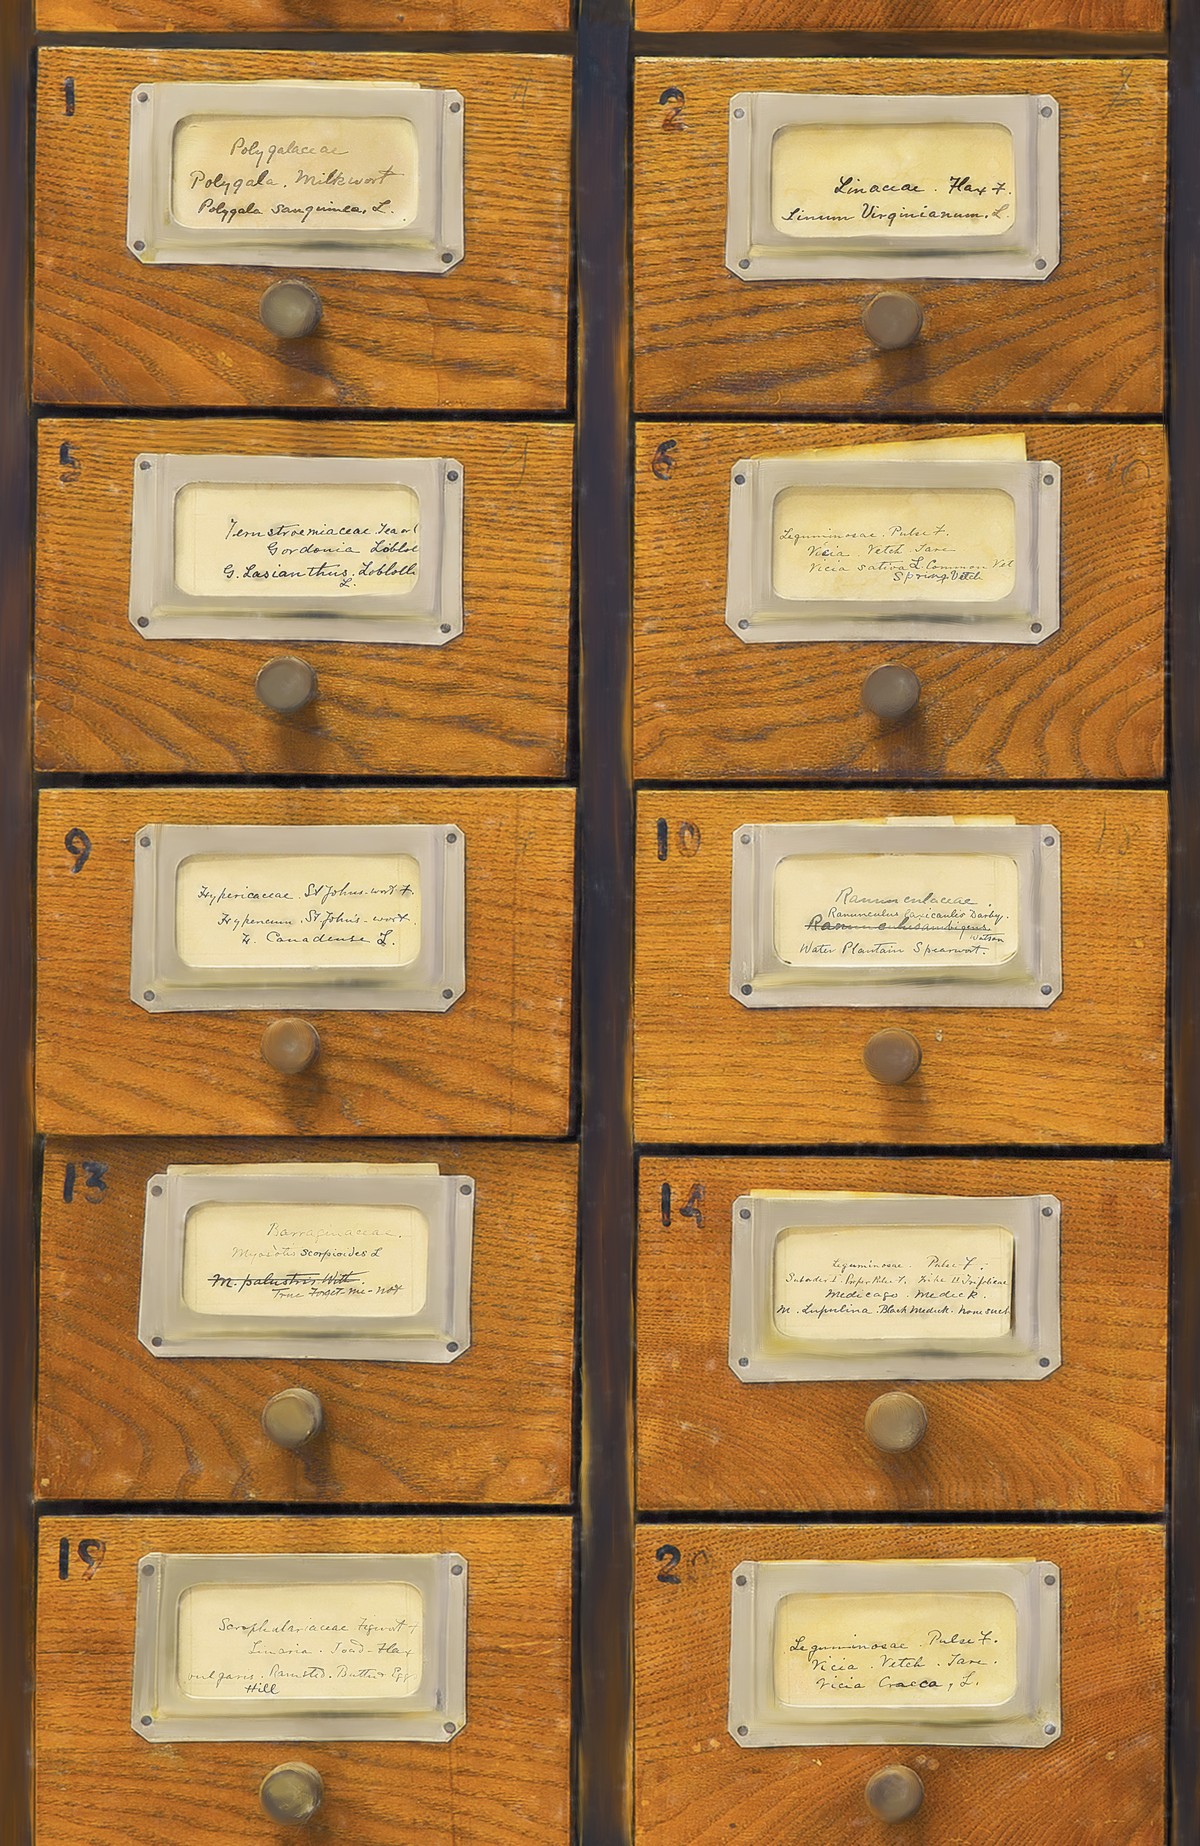 1
Polygalaceae
Polygala. Milkwort
Polygala sanguinea, L.
2
Linaceae. Flax F.
Linum Virginianum. L.
5
Ternstroemiaceae. Tea or
Gordonia Loblol
G. Lasianthus. Loblolli
L.
6
Leguminosae. Pulse F.
Vicia Vetch Tare
Vicia sativa L. Common Vet
Spring Vetch
9
Hypericaceae. St Johns-wort F.
Hypericum. St. John's-wort.
H. Canadense L.
10
Ranunculaceae.
Ranunculus laxicaulis Darby.
Ranunculus ambigens.
Watson
Water Plantain Spearwort.
13
Borraginaceae.
Myosotis scorpioides L
M. palustris. With.
True Forget-me-not
14
Leguminosae. Pulse F.
Suborder I. Proper Pulse F. Tribe II Trifolieae
Medicago. Medick.
M. Lupulina. Black Medick. Nonesuch
19
Scrophulariaceae Figwort F
Linaria. Toad-Flax
vulgaris. Ramsted. Butter Egg
Hill
20
Leguminosae. Pulse F.
Vicia. Vetch. Tare.
Vicia Cracca, L.